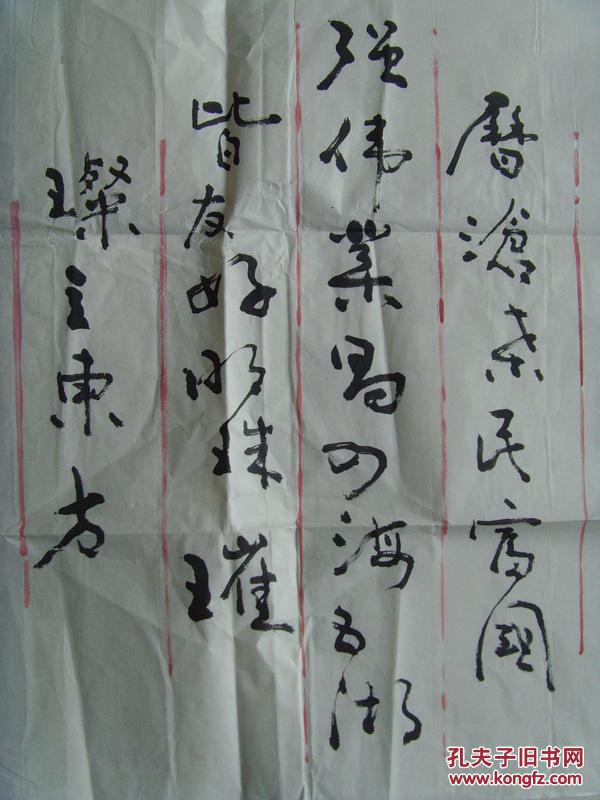 曆滄桑民富國
强伟業昌四海五湖
皆友好明珠璀
璨立東方
孔夫子旧书网
www.kongfz.com